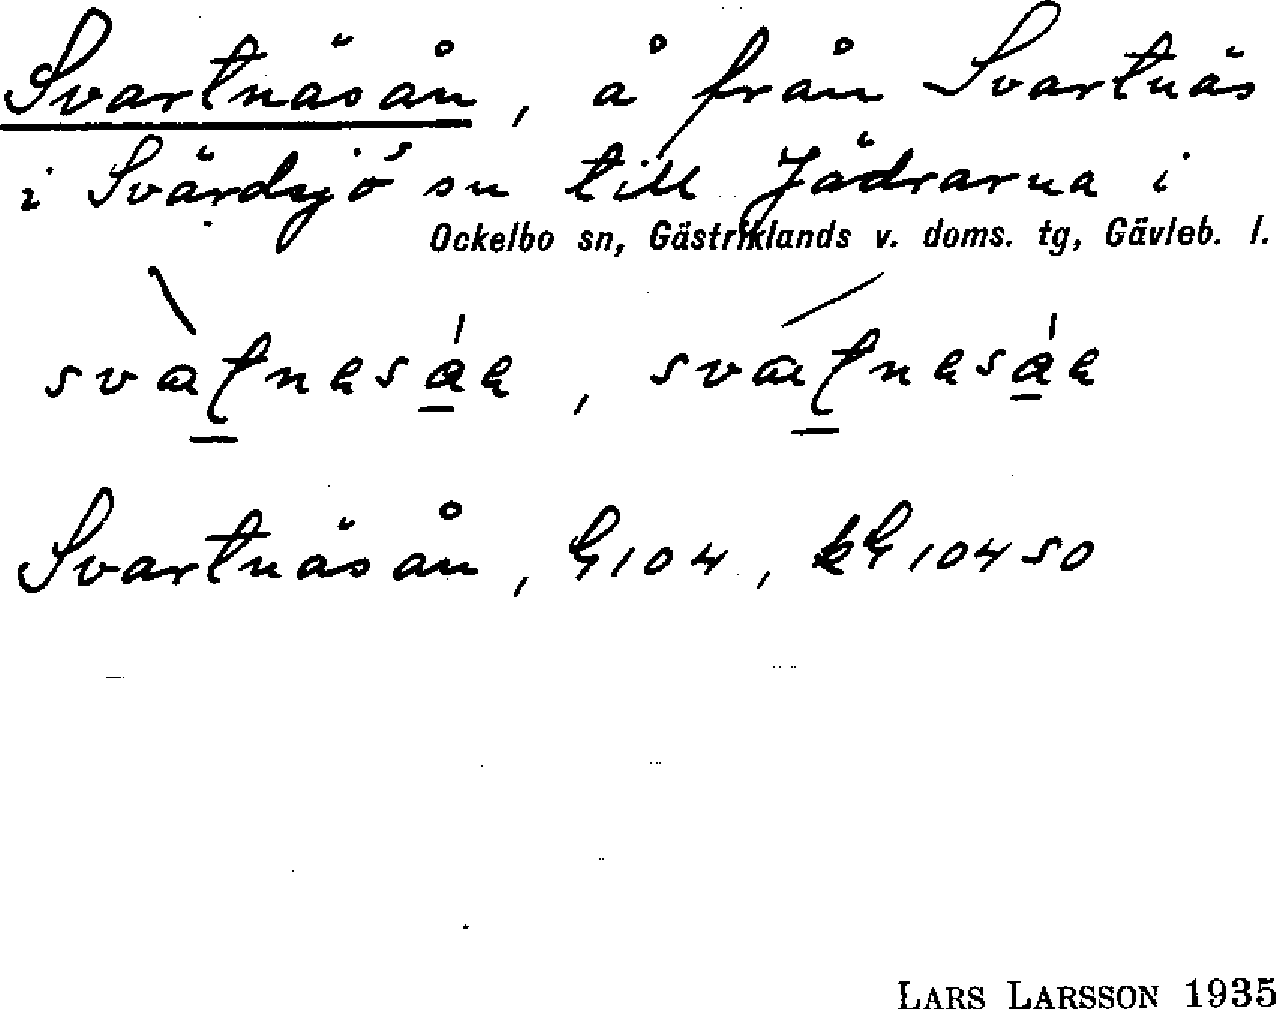 Svartnäsån, å från Svartnäs
i Svärdsjö sn till Jädrarna i
Ockelbo sn, Gästriklands v. doms. tg, Gävleb. l.
Svartnäsån, G104, kG10450
LARS LARSSON 1935